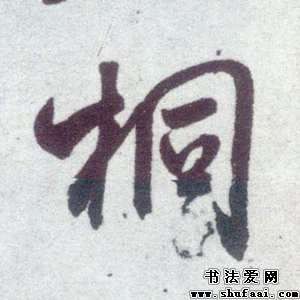 桐
书法爱网
www.shufaai.com